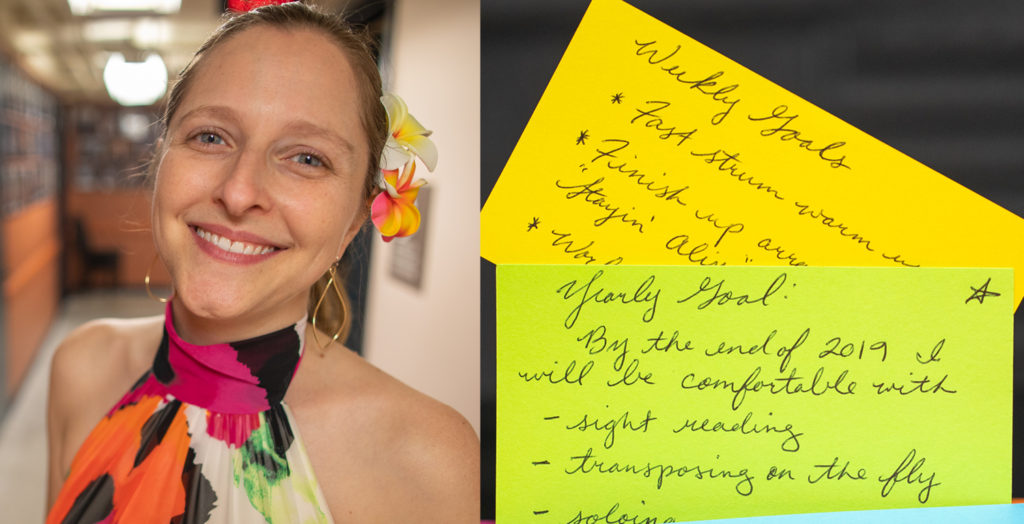 Weekly Goals
* Fast strum warm u
* Finish up arra
"Stayin' Aliv"
*
Yearly Goal:
By the end of 2019 I
will be comfortable with
- sight reading
- transposing on the fly
- soloing